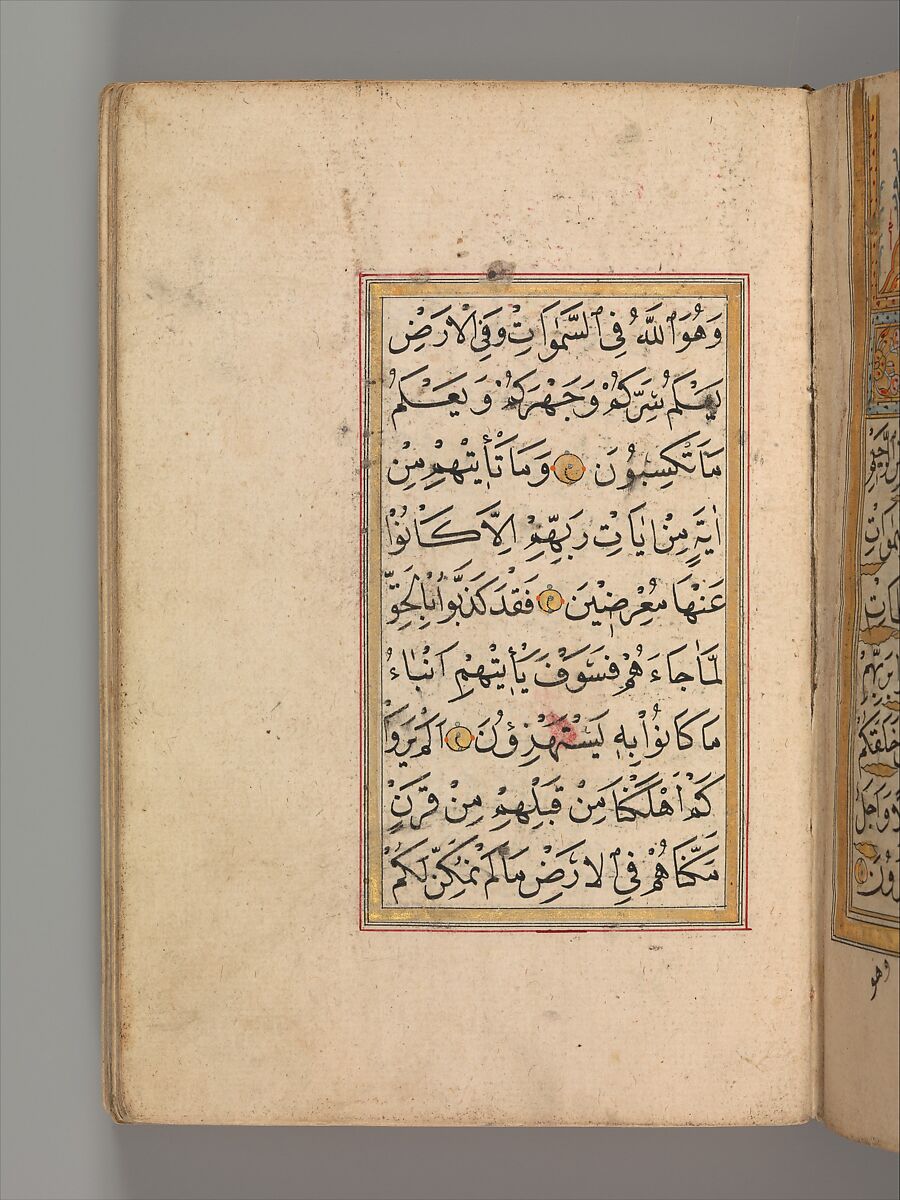 وَهُوَ ٱللَّهُ فِي ٱلسَّمٰوَاتِ وَفِي الْاَرْضِ
يَعْلَمُ سِرَّكُمْ وَجَهْرَكُمْ وَيَعْلَمُ
مَا تَكْسِبُونَ وَمَا تَأْتِيهِمْ مِنْ
اٰيَةٍ مِنْ اٰيَاتِ رَبِّهِمْ اِلَّا كَانُوْا
عَنْهَا مُعْرِضِينَ فَقَدْ كَذَّبُوْا بِالْحَقِّ
لَمَّا جَاءَهُمْ فَسَوْفَ يَأْتِيهِمْ اَنْبٰاءُ
مَا كَانُوْا بِهِ يَسْتَهْزِؤُنَ اَلَمْ يَرَوْا
كَمْ اَهْلَكْنَا مِنْ قَبْلِهِمْ مِنْ قَرْنٍ
مَكَّنَّاهُمْ فِي ٱلْاَرْضِ مَا لَمْ نُمَكِّنْ لَكُمْ
وهو